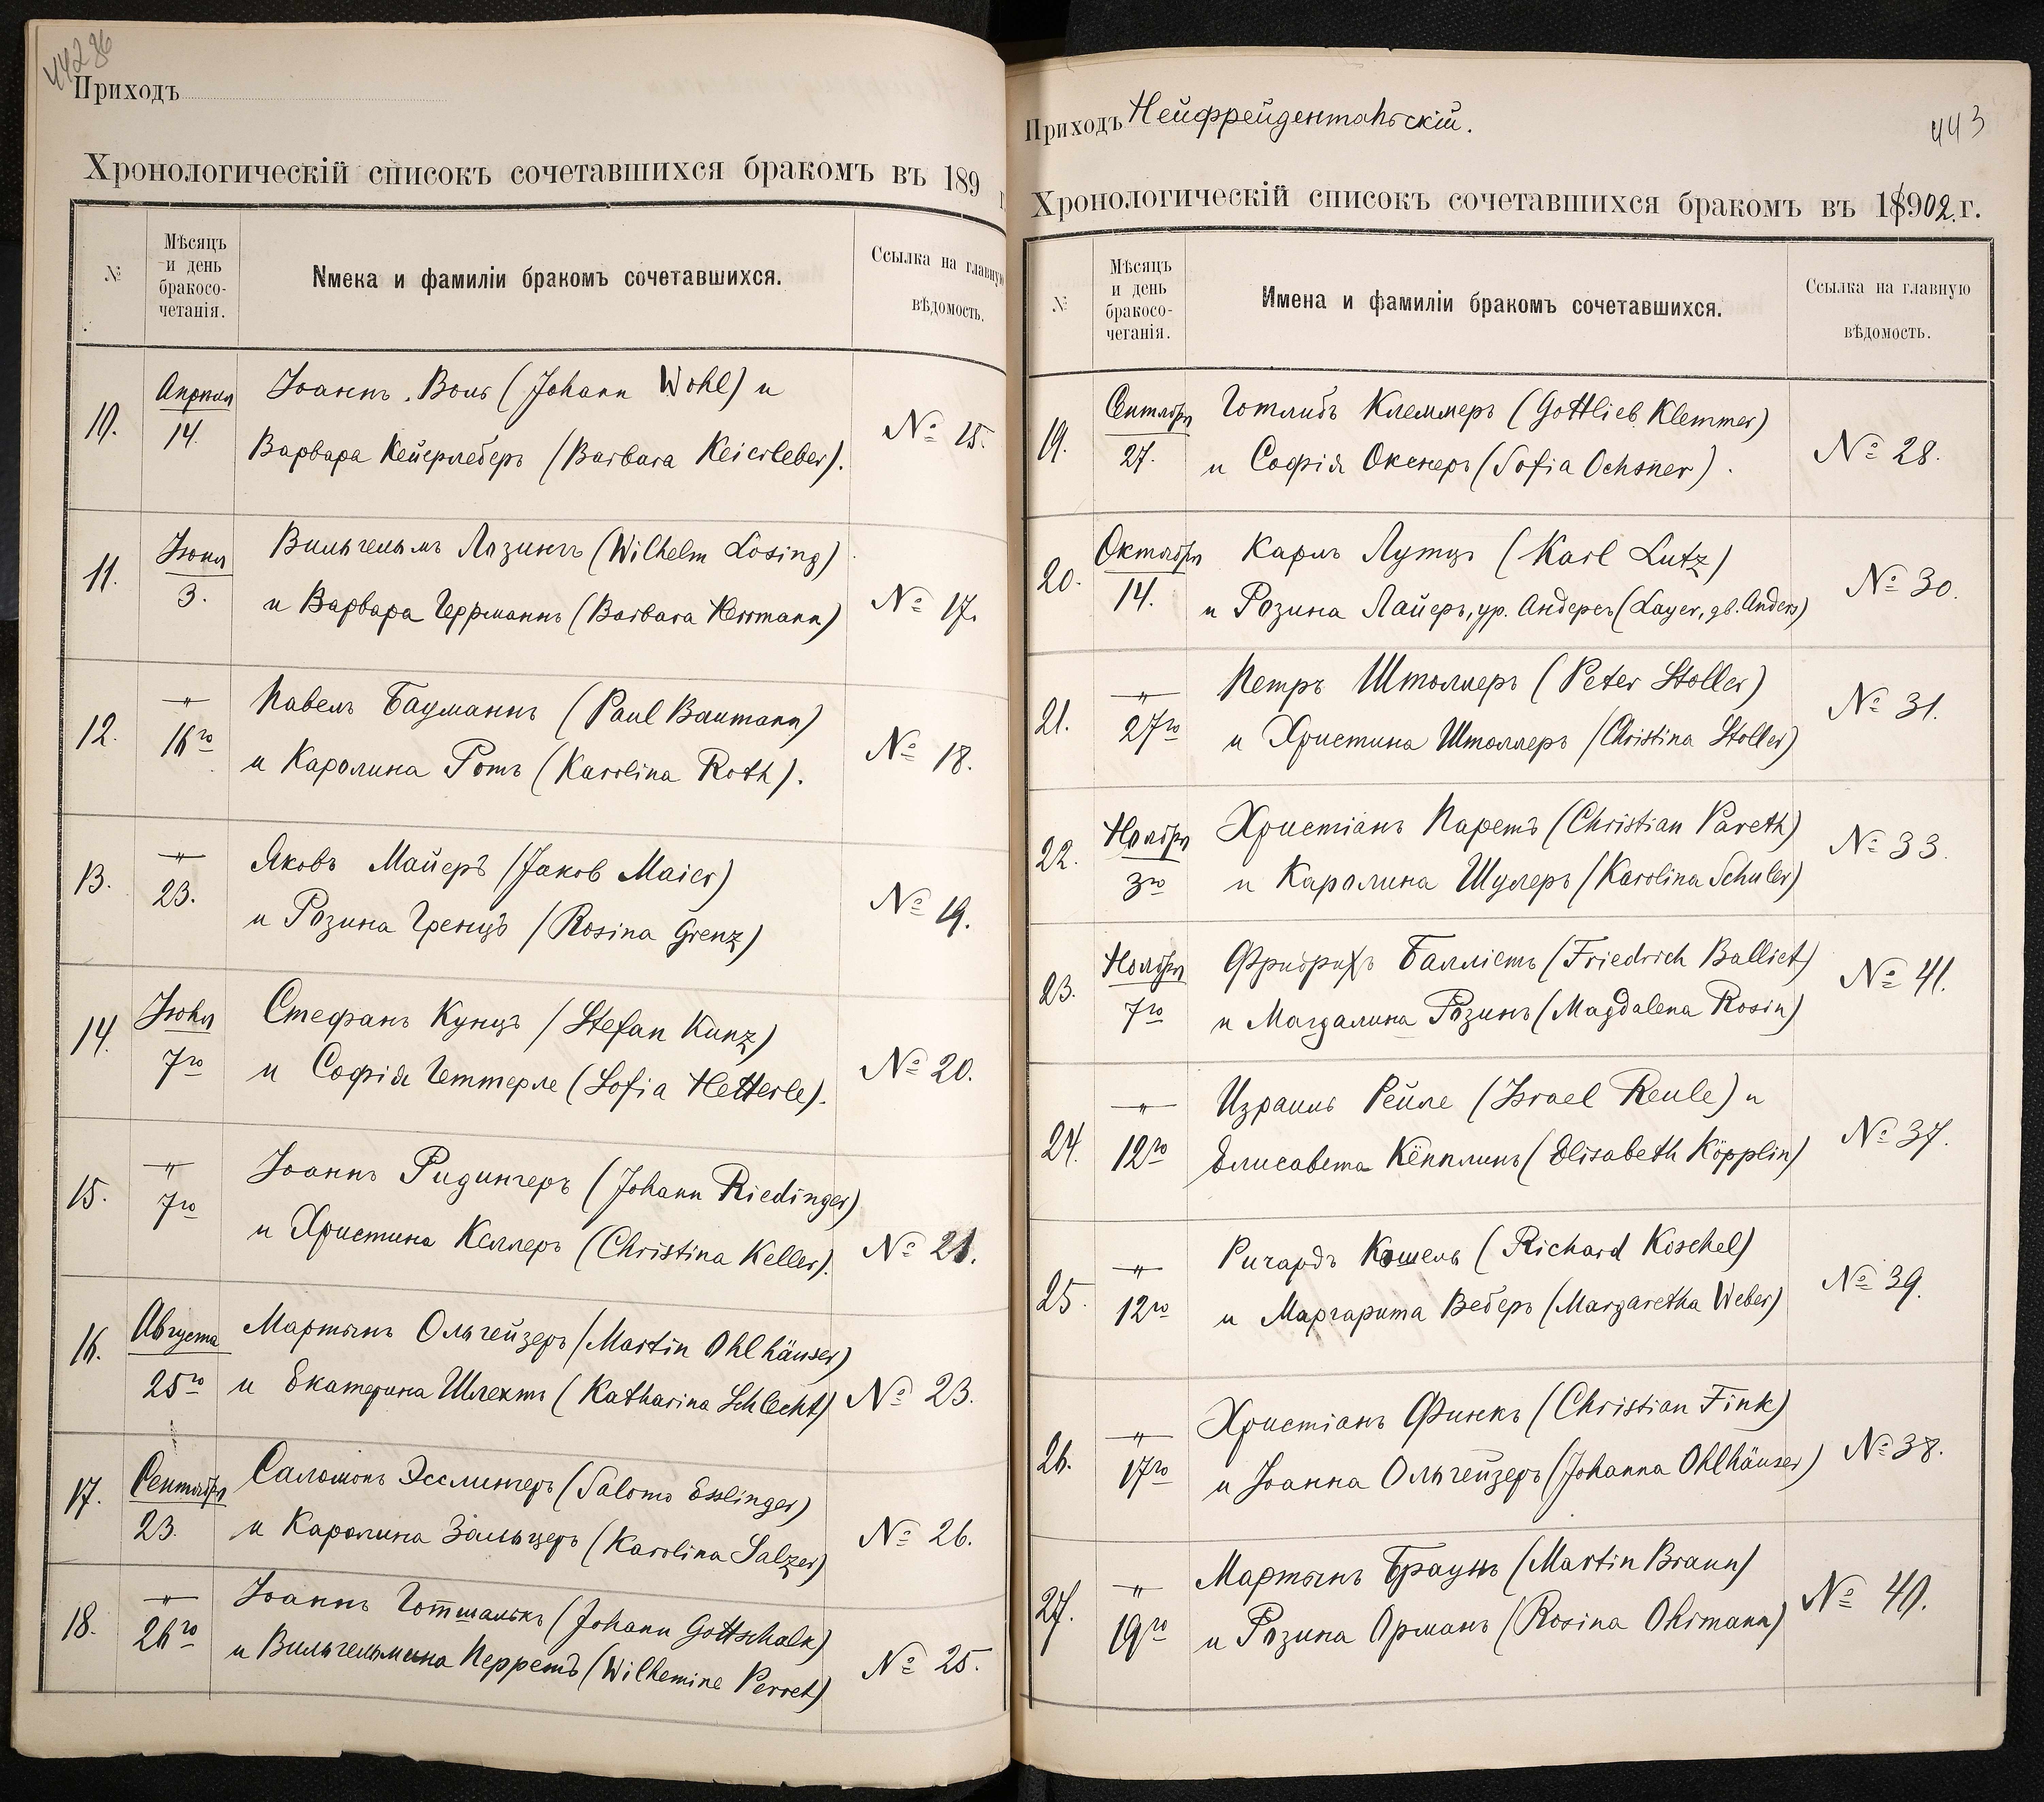 44286
Приходъ
Хронологическій списокъ сочетавшихся бракомъ въ 189 г
№
Мѣсяцъ
и день
бракосо-
четанія.
Nмека и фамиліи бракомъ сочетавшихся.
Ссылка на главную
вѣдомость.
10.
Апрѣля
14.
Іоаннъ Воль (Johann Wohl) и
Варвара Кейерлеберъ (Barbara Keierleber).
№ 15.
11.
Іюня
3.
Вильгельмъ Лозингъ (Wilhelm Losing)
и Варвара Геррманнъ (Barbara Herrmann)
№ 17.
12.
—"—
16го
Павелъ Бауманнъ (Paul Baumann)
и Каролина Ротъ (Karolina Roth).
№ 18.
13.
—"—
23.
Яковъ Майеръ (Jakob Maier)
и Розина Гренцъ (Rosina Grenz)
№ 19.
14.
Іюля
7го
Стефанъ Кунцъ (Stefan Kunz)
и Софія Геттерле (Sofia Hetterle).
№ 20.
15.
—"—
7го
Іоаннъ Ридингеръ (Johann Riedinger)
и Христина Келлеръ (Christina Keller).
№ 21.
16.
Августа
25го
Мартынъ Ольгейзеръ (Martin Ohlhäuser)
и Екатерина Шлехтъ (Katharina Schlecht)
№ 23.
17.
Сентября
23.
Саломонъ Эсслингеръ (Salomo Esslinger)
и Каролина Зальцеръ (Karolina Salzer)
№ 26.
18.
—"—
26го
Іоаннъ Готшалькъ (Johann Gottschalk)
и Вильгельмина Перретъ (Wilhemine Perret)
№ 25.
Приходъ Нейфрейдентальскій.
443
Хронологическій списокъ сочетавшихся бракомъ въ 18902.г.
№
Мѣсяцъ
и день
бракосо-
четанія.
Имена и фамиліи бракомъ сочетавшихся.
Ссылка на главную
вѣдомость.
19.
Сентября
27.
Готлибъ Клеммеръ (Gottlieb Klemmer)
и Софія Окснеръ (Sofia Ochsner).
№ 28.
20.
Октября
14.
Карлъ Лутцъ (Karl Lutz)
и Розина Лайеръ, ур. Андерсъ (Layer, gb. Anders)
№ 30.
21.
—"—
27го
Петръ Штоллеръ (Peter Stoller)
и Христина Штоллеръ (Christina Stoller)
№ 31.
22.
Ноября
3го
Христіанъ Паретъ (Christian Pareth)
и Каролина Шулеръ (Karolina Schuler)
№ 33.
23.
Ноября
7го
Фридрихъ Балліетъ (Friedrich Balliet)
и Магдалина Розинъ (Magdalena Rosin)
№ 41.
24.
—"—
12го
Израиль Рейле (Israel Reule) и
Елисавета Кёпплинъ (Elisabeth Köpplin)
№ 37.
25.
—"—
12го
Ричардъ Кошель (Richard Koschel)
и Маргарита Веберъ (Margaretha Weber)
№ 39.
26.
—"—
17го
Христіанъ Финкъ (Christian Fink)
и Іоанна Ольгейзеръ (Johanna Ohlhäuser)
№ 38.
27.
—"—
19го
Мартынъ Браунъ (Martin Braun)
и Розина Орманъ (Rosina Ohrmann)
№ 40.